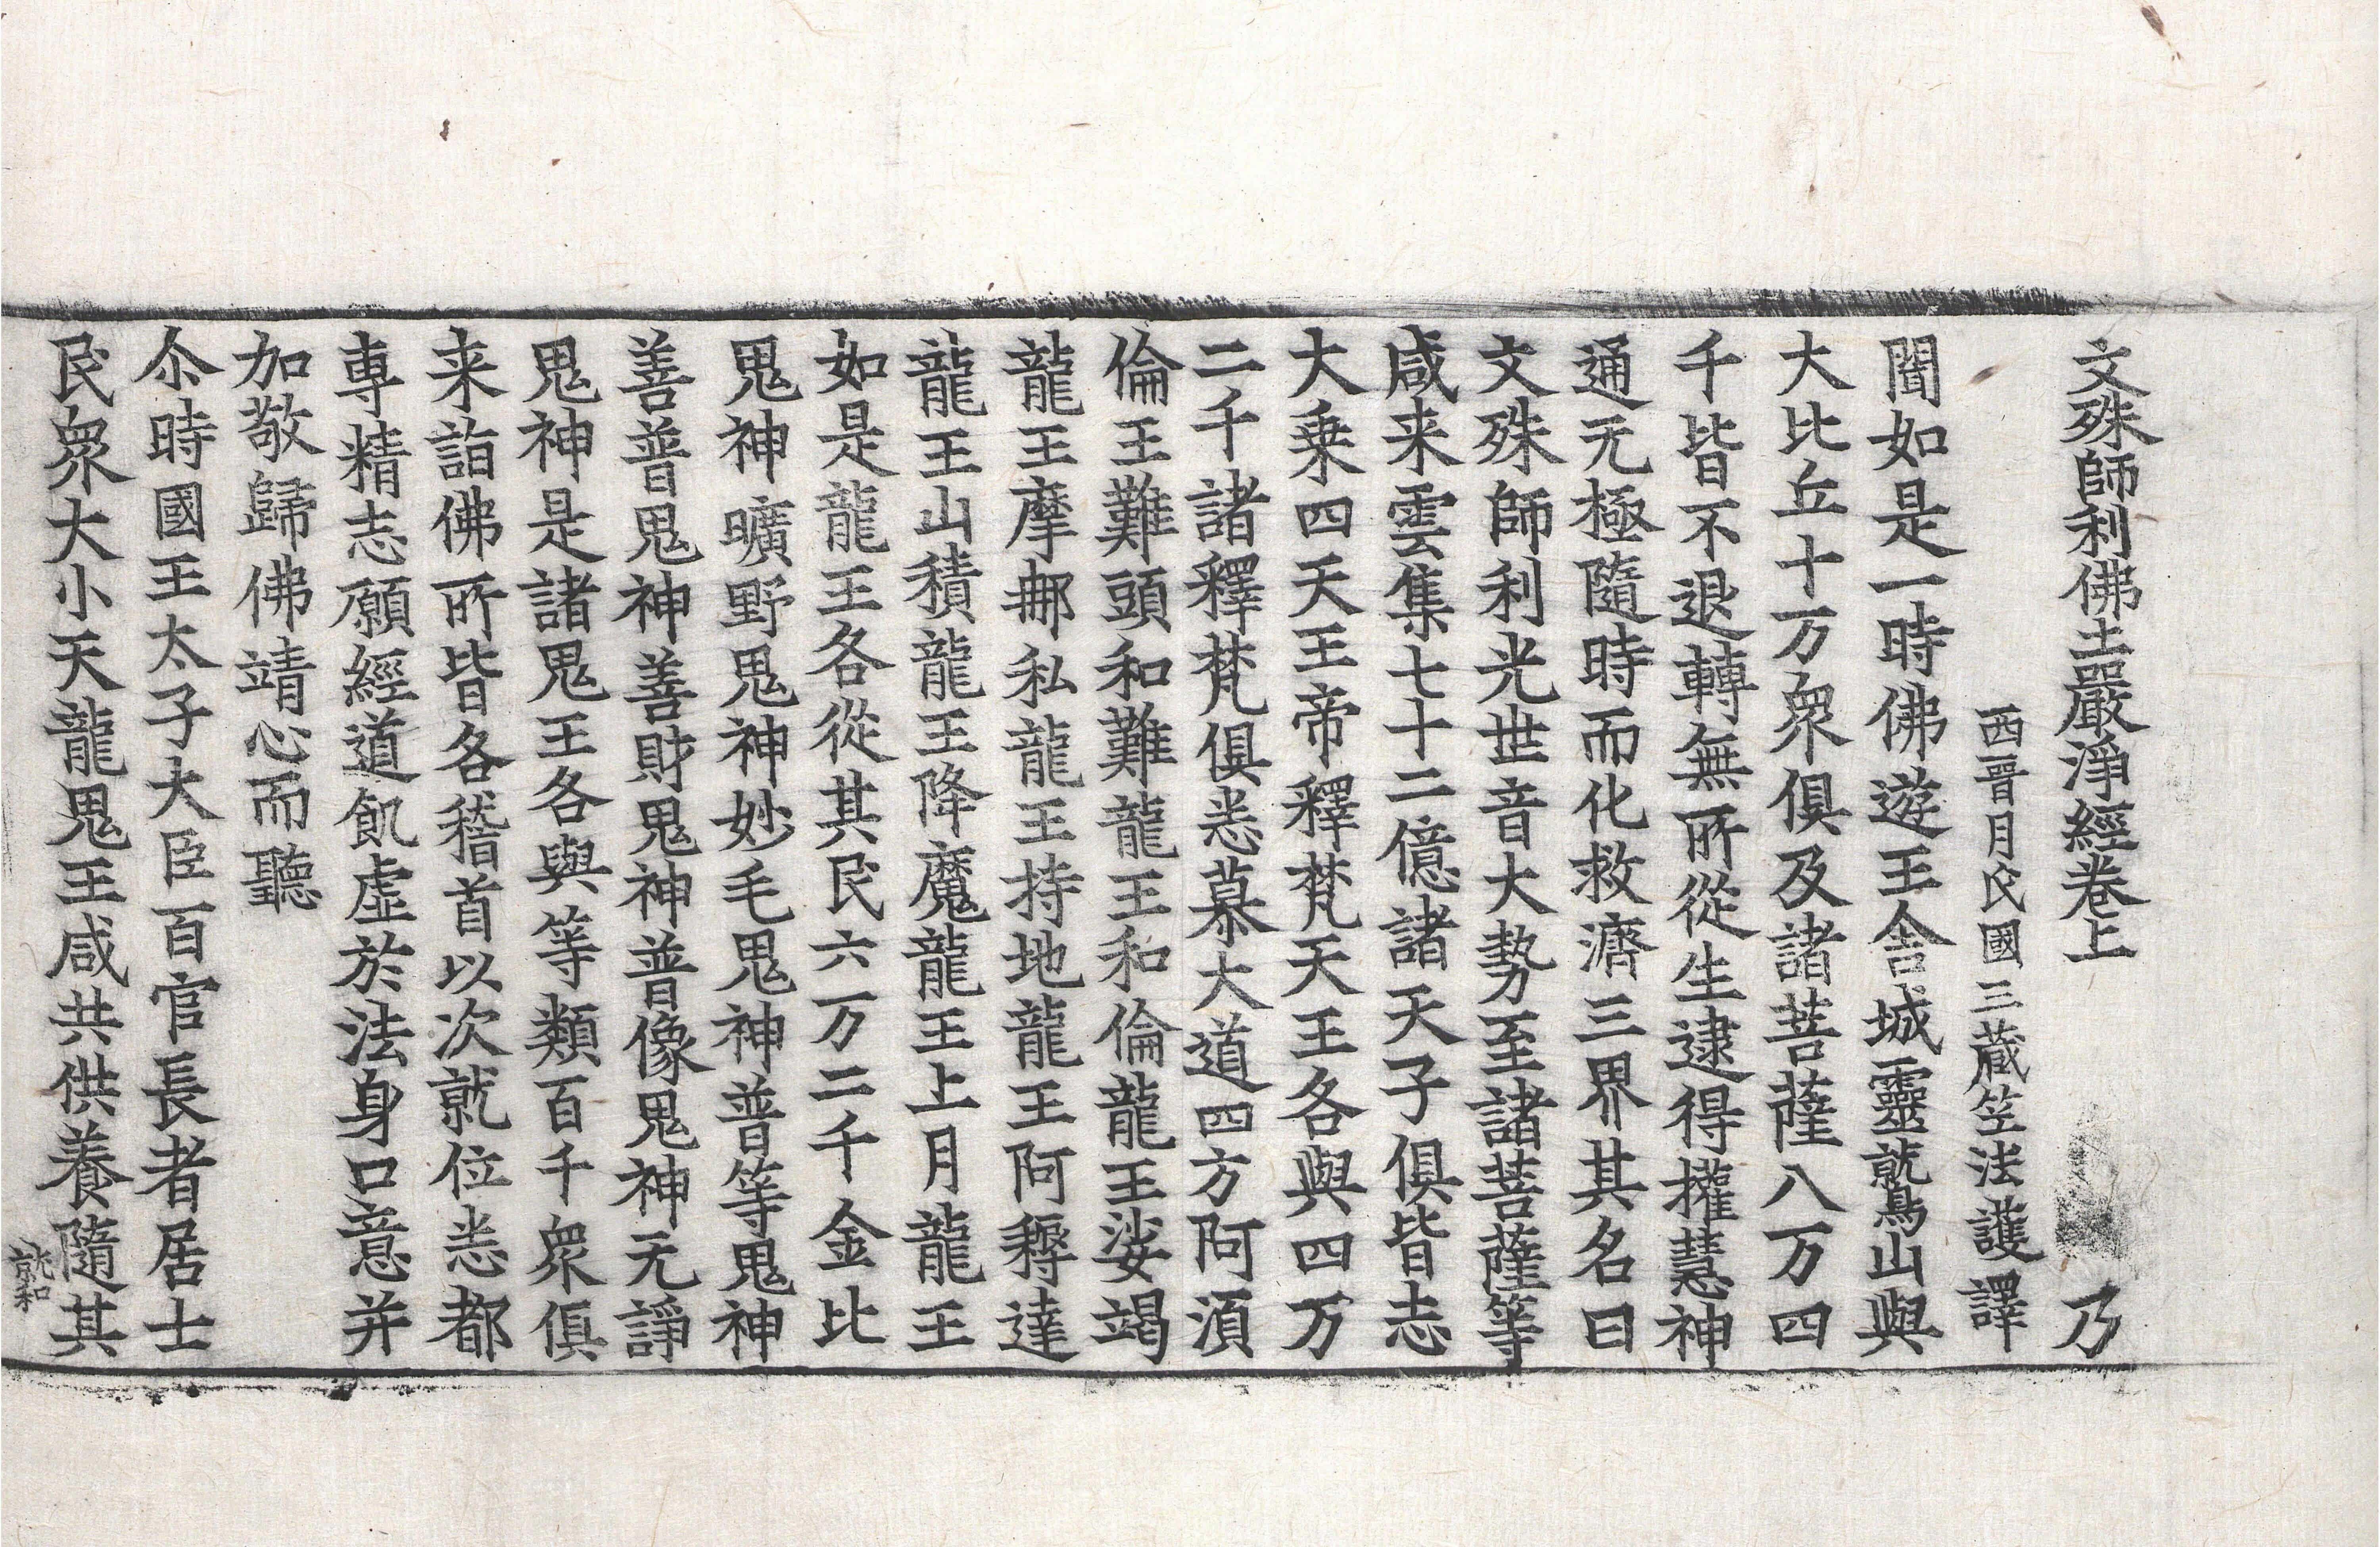 文殊師利佛土嚴淨經卷上 乃
西晉月氏國三藏竺法護譯
聞如是一時佛遊王舍城靈鷲山與
大比丘十万衆俱及諸菩薩八万四
千皆不退轉無所從生逮得權慧神
通无極隨時而化救濟三界其名曰
文殊師利光世音大勢至諸菩薩等
咸来雲集七十二億諸天子俱皆志
大乗四天王帝釋梵天王各與四万
二千諸釋梵俱悉慕大道四方阿須
倫王難頭和難龍王和倫龍王娑竭
龍王摩那私龍王持地龍王阿耨達
龍王山積龍王降魔龍王上月龍王
如是龍王各從其民六万二千金比
鬼神曠野鬼神妙毛鬼神普等鬼神
善普鬼神善財鬼神普像鬼神无諍
鬼神是諸鬼王各與等類百千衆俱
来詣佛所皆各稽首以次就位悉都
專精志願經道飢虚於法身口意并
加敬歸佛靖心而聽
尒時國王太子大臣百官長者居士
民衆大小天龍鬼王咸共供養隨其
就和